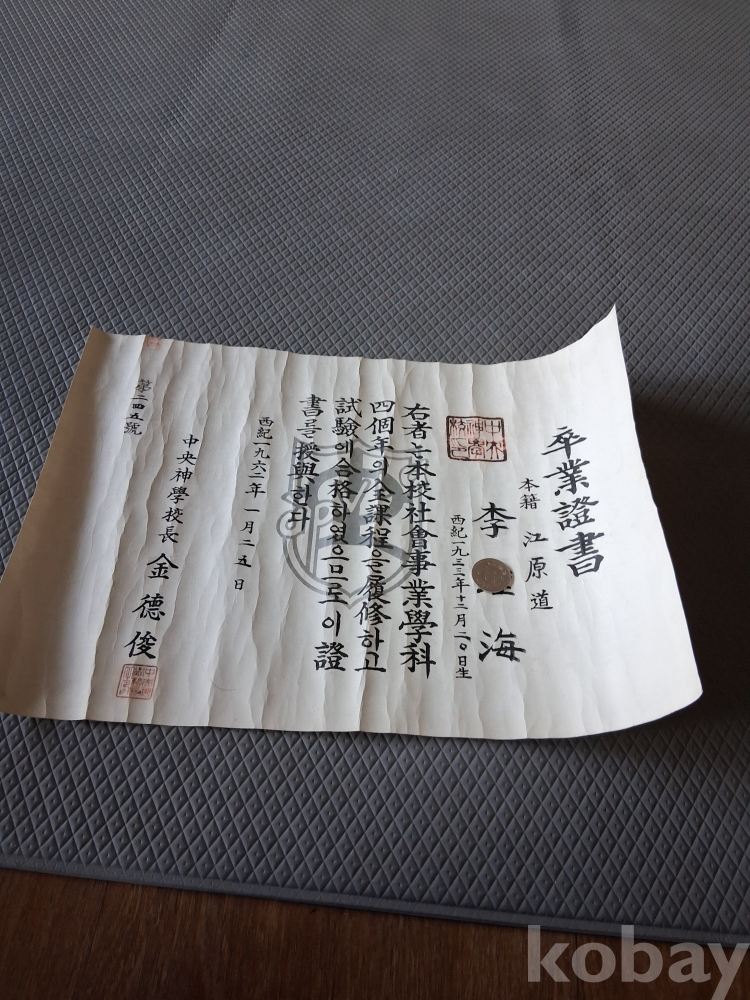 卒業證書
本籍 江原道
李 海
西紀一九三三年十二月二０日生
右者는本校社會事業學科
四個年의全課程을履修하고
試驗에合格하였으므로이證
書를授與한다
西紀一九六二年 一月二五日
中央神學校長 金德俊
第二四五號
kobay